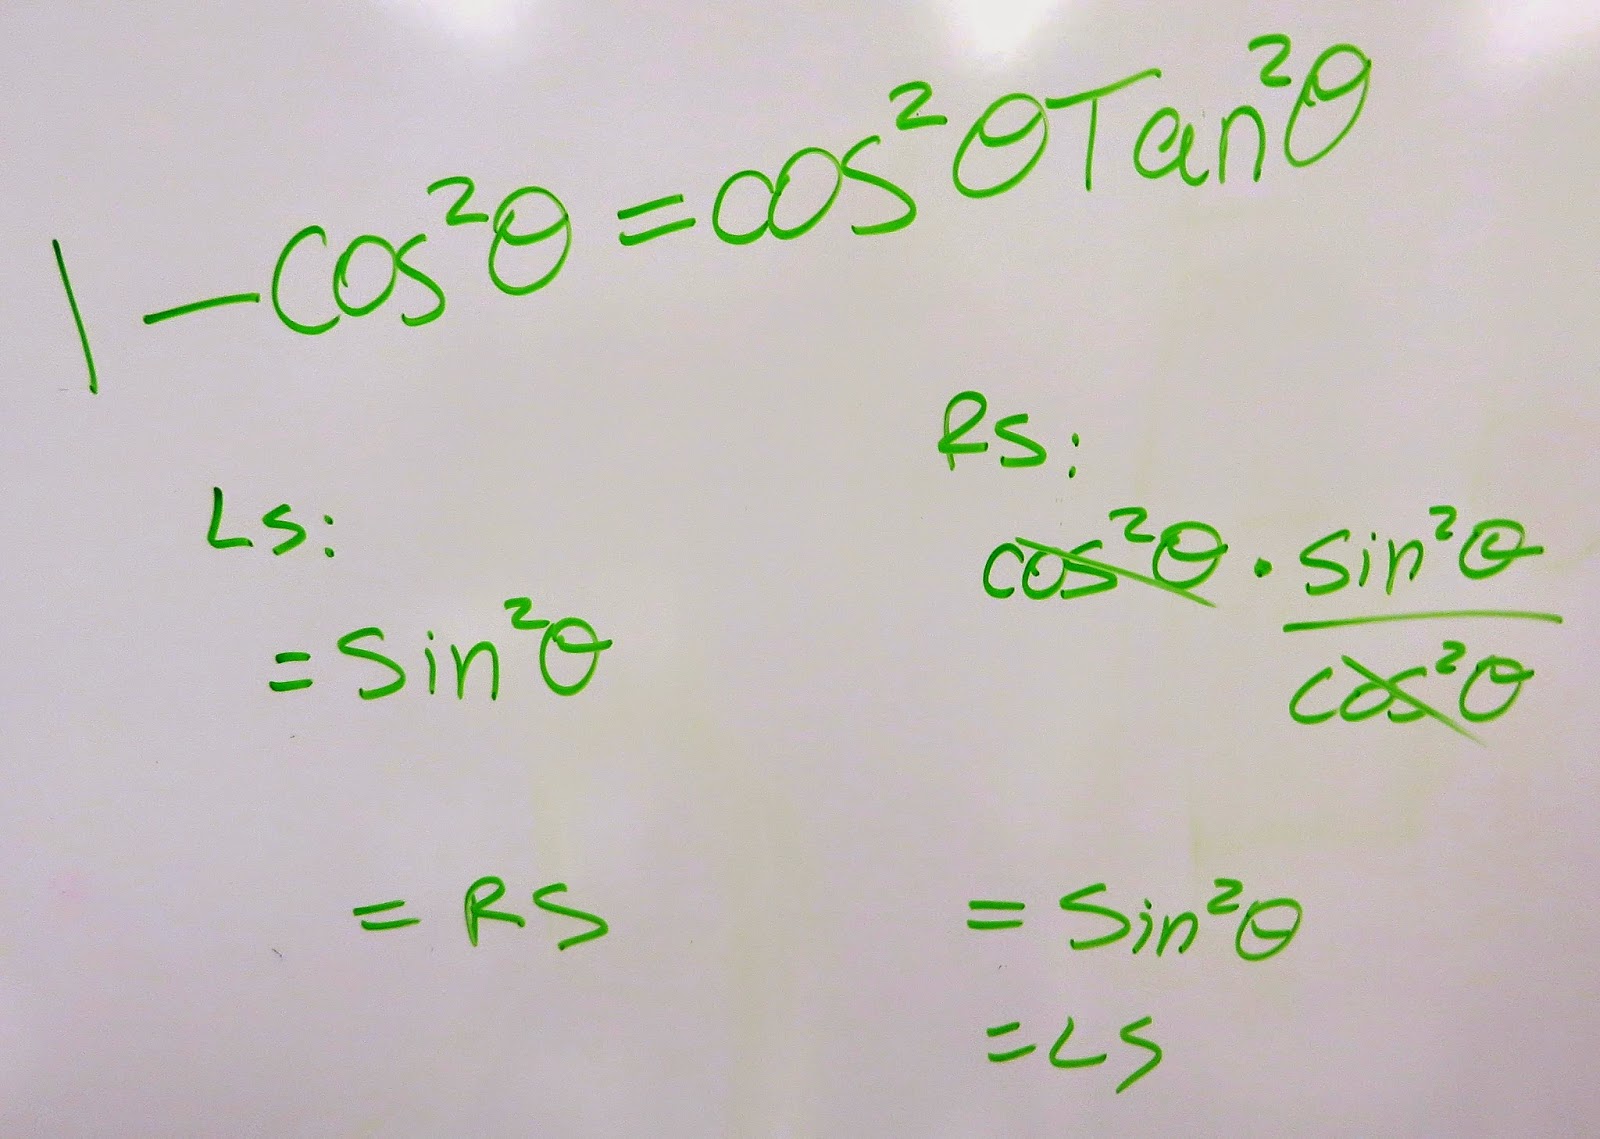 1 - Cos²θ = cos²θ Tan²θ
LS:
= Sin²θ
= RS
RS:
cos²θ · sin²θ / cos²θ
= Sin²θ
= LS